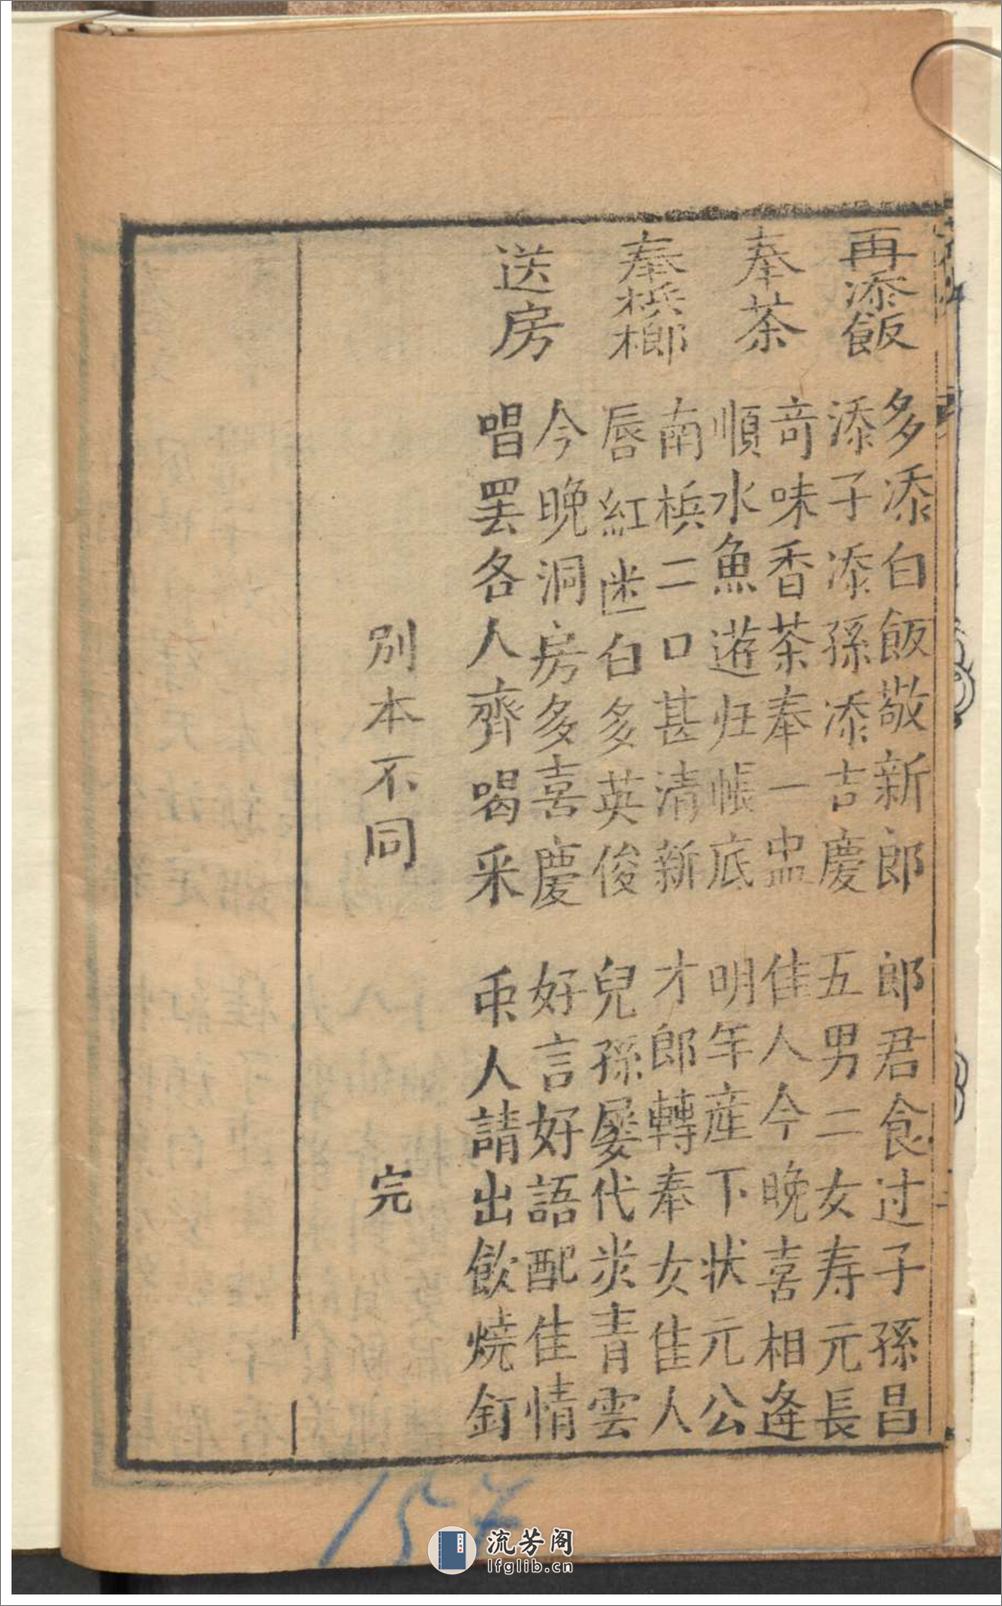 再添飯
多添白飯敬新郎 郎君食过子孫昌
添子添孫添吉慶 五男二女寿元長
奉茶
奇味香茶奉一盅 佳人今晚喜相逢
順水魚遊归帳底 明年産下状元公
奉梹榔
南梹二口甚清新 才郎轉奉女佳人
唇紅迷白多英俊 兒孫屡代岁青雲
送房
今晚洞房多喜慶 好言好語配佳情
唱罢各人齊喝采 众人請出飲燒釘
別本不同 完
157
流芳阁
lfglib.cn